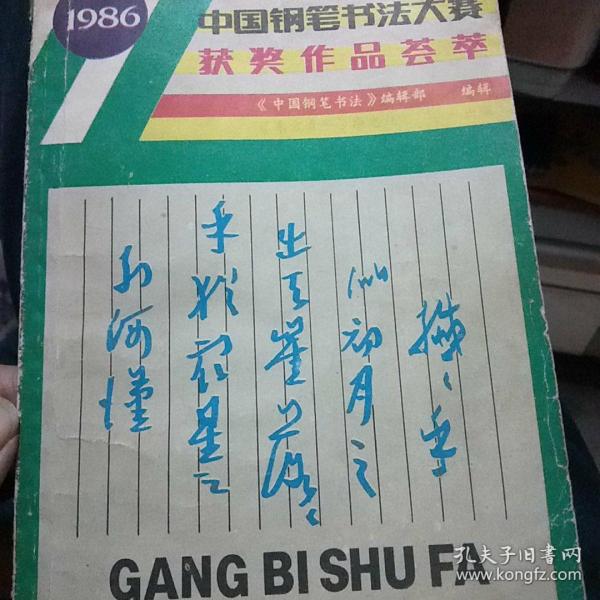 1986
中国钢笔书法大赛
获奖作品荟萃
《中国钢笔书法》编辑部 编辑
纖々乎
似初月之
出天崖落々
乎猶衆星之
列河漢
GANG BI SHU FA
孔夫子旧书网
www.kongfz.com